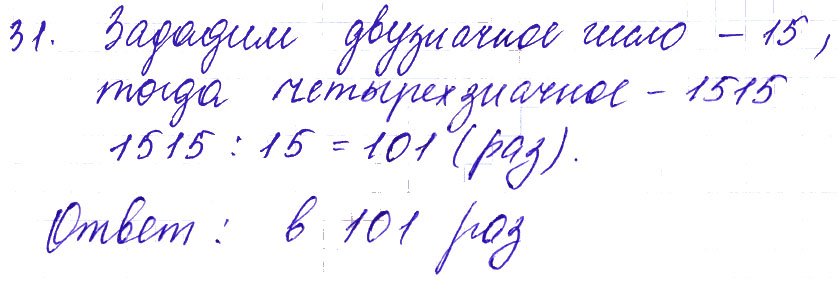 31. Зададим двузначное число – 15,
тогда четырехзначное – 1515
1515 : 15 = 101 (раз).
Ответ: в 101 раз